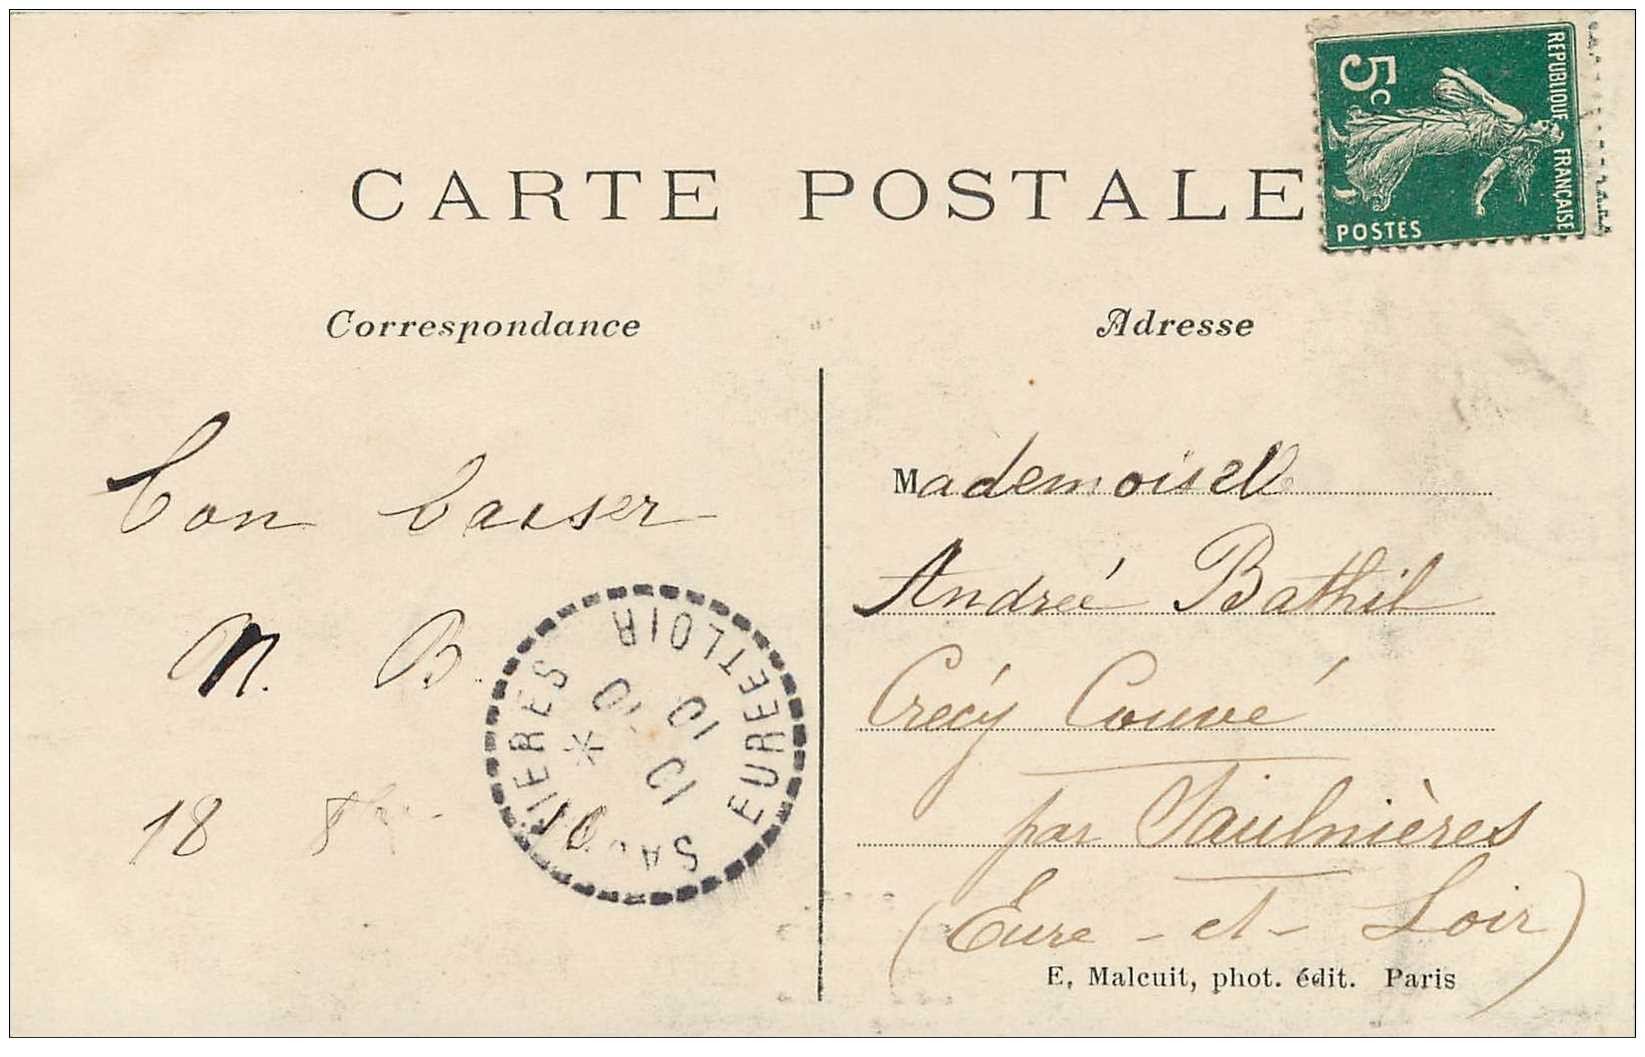 CARTE POSTALE
5c
REPUBLIQUE FRANÇAISE
POSTES
Correspondance
Adresse
Bon baiser
M. B.
18 8bre
Mademoiselle
Andrée Bathil
Crécy Couvé
par Saulnières
(Eure-et-Loir)
EURE ET LOIR
10
10
E. Malcuit, phot. édit. Paris